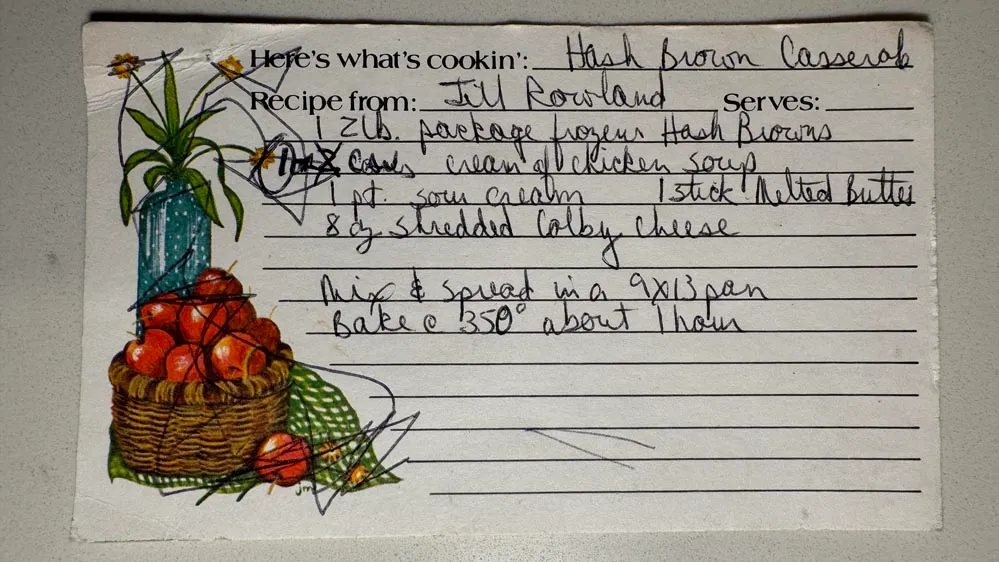 Here's what's cookin': Hash Brown Casserole
Recipe from: Jill Rowland Serves:
1 2lb. package frozen Hash Browns
cans cream of chicken soup
1 pt. sour cream 1 stick Melted Butter
8 oz shredded Colby cheese
Mix & spread in a 9X13 pan
Bake @ 350° about 1 hour
jm